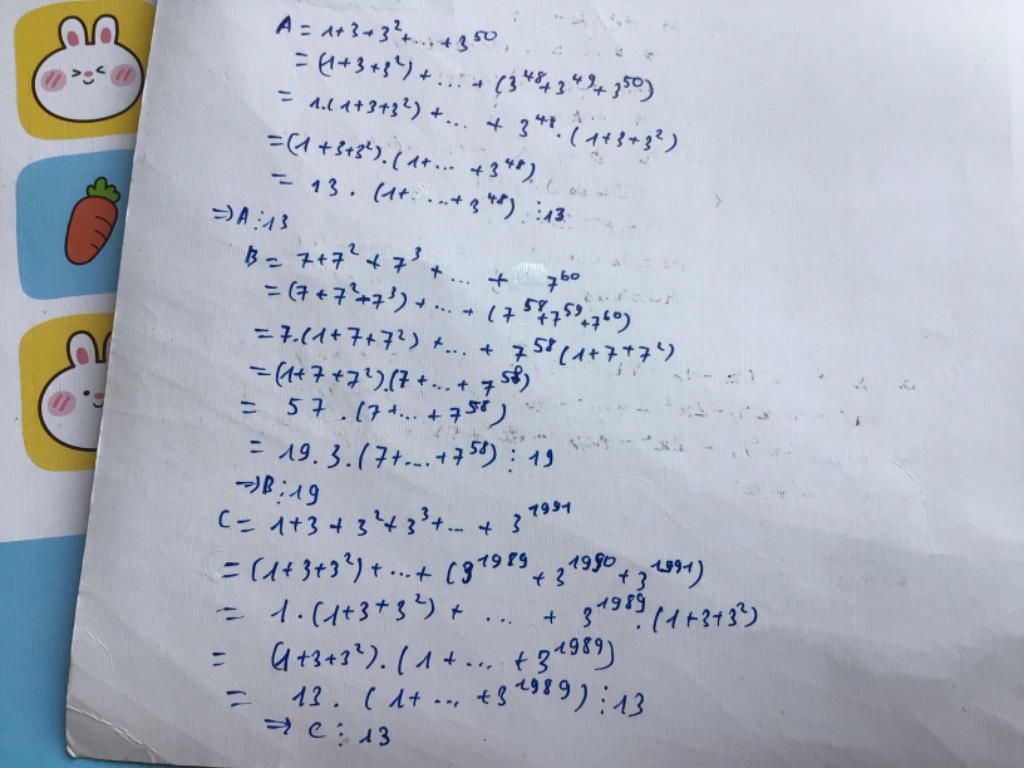 A = 1+3+3²+...+3⁵⁰
= (1+3+3²) + ... + (3⁴⁸+3⁴⁹+3⁵⁰)
= 1.(1+3+3²) + ... + 3⁴⁸.(1+3+3²)
=(1+3+3²).(1+... +3⁴⁸)
= 13. (1+...+3⁴⁸) ⋮13
⇒A⋮13
B = 7+7²+7³ +... + 7⁶⁰
= (7+7²+7³) +... + (7⁵⁸+7⁵⁹+7⁶⁰)
=7.(1+7+7²) +... + 7⁵⁸(1+7+7²)
=(1+7+7²).(7+...+7⁵⁸)
= 57.(7+...+7⁵⁸)
= 19.3.(7+...+7⁵⁸)⋮19
⇒B⋮19
C= 1+3+3²+3³+...+ 3¹⁹⁹¹
= (1+3+3²)+...+(3¹⁹⁸⁹+3¹⁹⁹⁰+3¹⁹⁹¹)
= 1.(1+3+3²) + ... + 3¹⁹⁸⁹.(1+3+3²)
= (1+3+3²).(1+... +3¹⁹⁸⁹)
= 13. (1+... +3¹⁹⁸⁹)⋮13
⇒ C⋮13